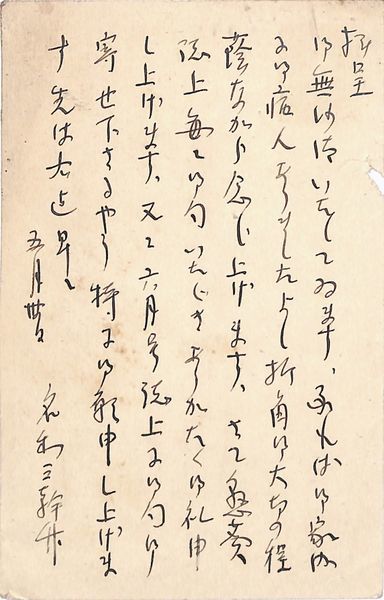 拝呈
御無沙汰いたしてゐます、承れば御家内
に御病人ありましたよし折角御大切の程
蔭ながら念じ上げます、さて懸葵
誌上毎々御句いたゞきありがたく御礼申
し上げます、又々六月号誌上に御句御
寄せ下さるやう特に御願申し上げま
す 先は右迄 早々
五月
名和三幹竹